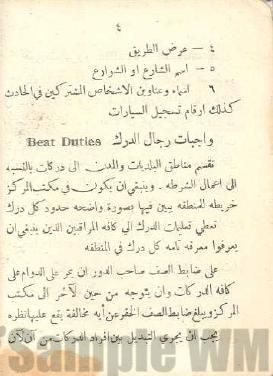 ٤
٤ — عرض الطريق
٥ — اسم الشارع او الشوارع
٦ اسماء وعناوين الاشخاص المشتركين في الحادث
كذلك ارقام تسجيل السيارات
واجبات رجال الدرك Beat Duties
تقسم مناطق البلديات والمدن الى دركات بالنسبه
الى اعمال الشرطه . وينبغي ان يكون في مكتب المركز
خريطه للمنطقه يبين فيها بصورة واضحه حدود كل درك
تعطي تعليمات الدرك الي كافه المراقبين الذين ينبغي ان
يعرفوا معرفه تامه كل درك في المنطقه
على ضابط الصف صاحب الدور ان يمر على الدوام على
كافه الدركات وان يتوجه من حين لآخر الى مكتب
المركز ويبلغ ضابط الصف الخفر عن أيه مخالفة يقع عليها نظره
يجب ان يجري التبديل بين افراد الدركات من ان لآن
Sample WM